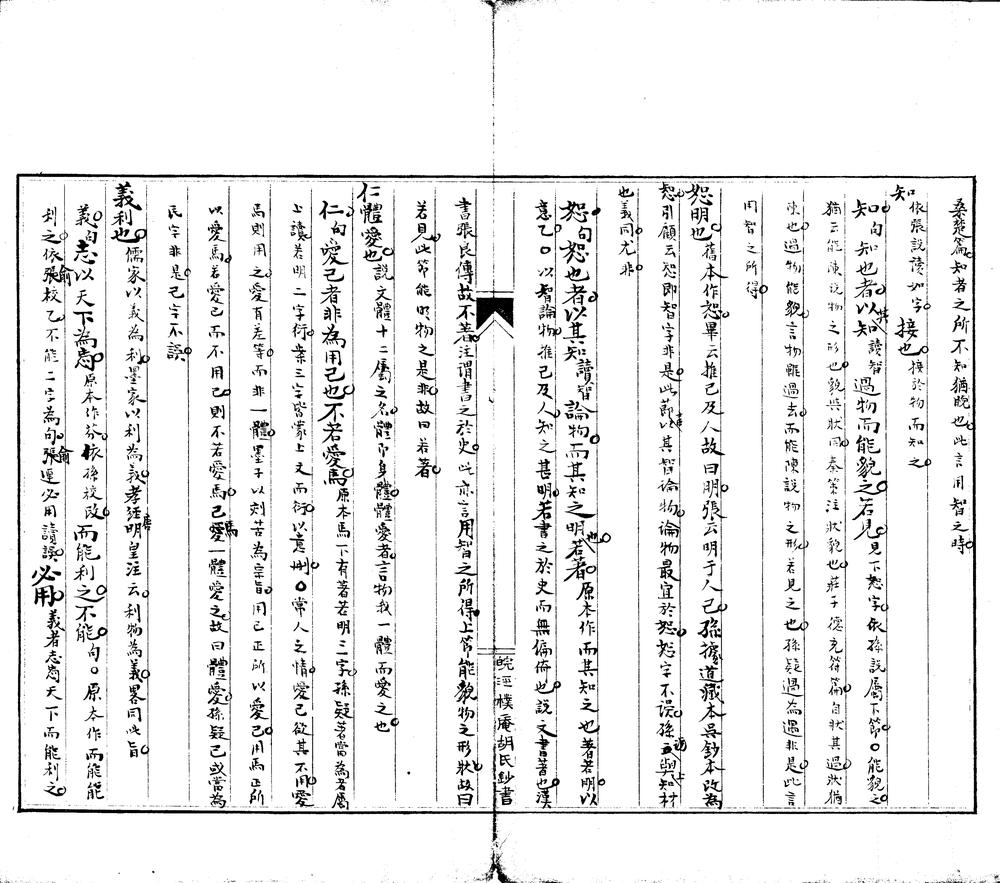 桑楚篇知者之所不知猶睨也此言用智之時
知依張說讀如字接也接於物而知之
知句知也者以其知讀智過物而能貌之若見見下恕字依孫說屬下節○能貌之
猶云能陳說物之形也貌與狀同秦策注狀貌也莊子德充符篇自狀其過狀猶
陳也過物能貌言物雖過去而能陳說物之形若見之也孫疑過為遇非是此言
用智之所得
恕明也舊本作恕畢云推己及人故曰明張云明于人己孫據道藏本吳鈔本改為
恕引顧云恕即智字非是此節以其智論物論物最宜於恕恕字不誤孫與知材
也義同尤非
恕句恕也者以其知讀智論物而其知之也明若著原本作而其知之也著若明以
意乙○以智論物推己及人知之甚明若書之於史而無偏倚也說文書著也漢
書張良傳故不著注謂書之於史此亦言用智之所得上節能貌物之形狀故曰
若見此節能明物之是非故曰若著
皖涇樸庵胡氏鈔書
仁體愛也說文體十二屬之名體即身體體愛者言物我一體而愛之也
仁句愛己者非為用己也不若愛馬原本馬下有著若明三字孫疑著當為者屬
上讀若明二字衍案三字皆蒙上文而衍以意刪○常人之情愛己欲其不用愛
馬則用之愛有差等而非一體墨子以刻苦為宗旨用己正所以愛己用馬正所
以愛馬若愛己而不用己則不若愛馬己馬愛一體愛之故曰體愛孫疑己或當為
民字非是己字不誤
義利也儒家以義為利墨家以利為義孝經唐明皇注云利物為義畧同此旨
義句志以天下為芬原本作芬依孫校改而能能利之不能句○原本作而能能
利之依張俞校乙不能二字為句張俞連必用讀誤必用義者志以天下而能利之